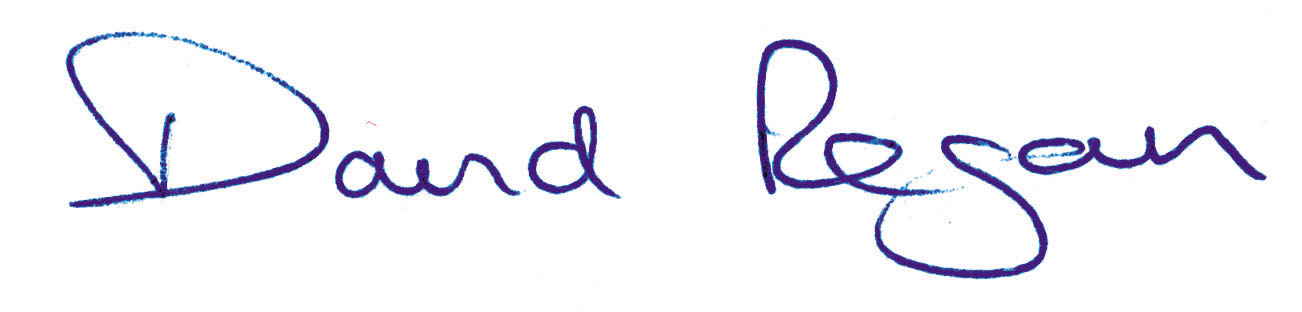 David Regan